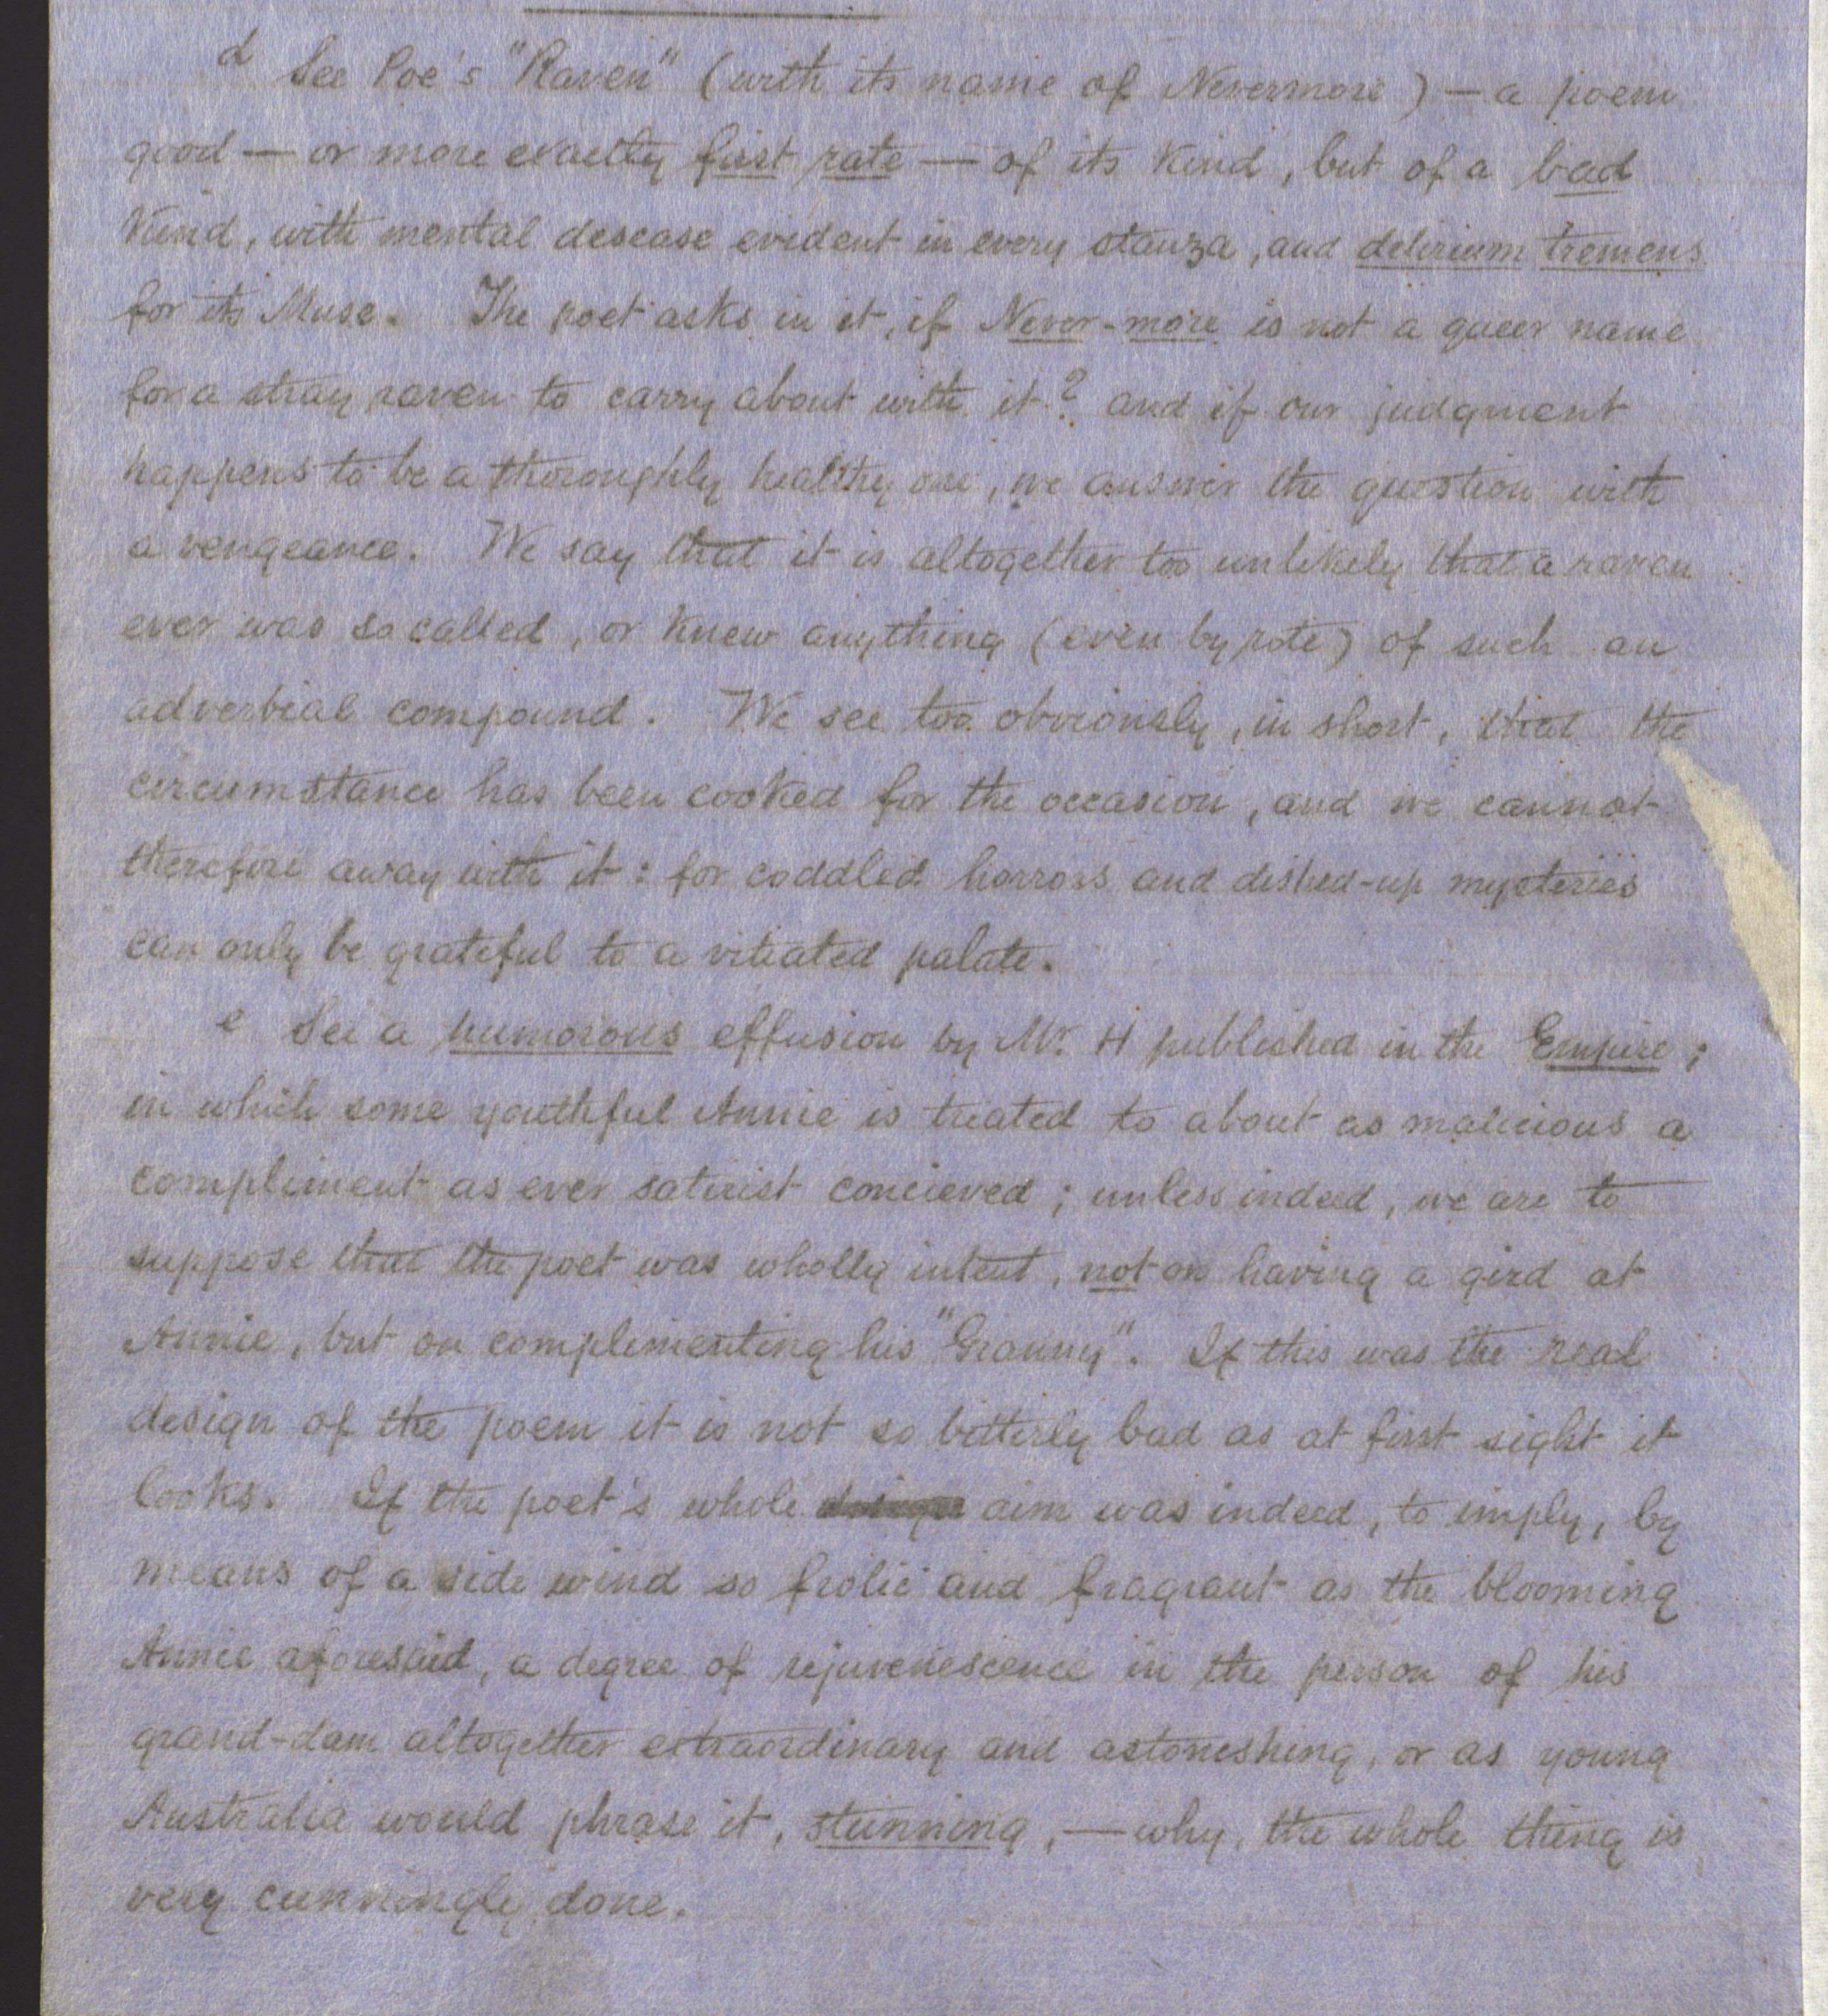 d See Poe's "Raven" (with its name of Nevermore) — a poem
good — or more exactly first rate — of its kind, but of a bad
kind, with mental desease evident in every stanza, and delirium tremens
for its Muse. The poet asks in it, if Never-more is not a queer name
for a stray raven to carry about with it? and if our judgment
happens to be a thoroughly healthy one, we answer the question with
a vengeance. We say that it is altogether too unlikely that a raven
ever was so called, or knew anything (even by rote) of such an
adverbial compound. We see too obviously, in short, that the
circumstance has been cooked for the occasion, and we cannot
therefore away with it: for coddled horrors and dished-up mysteries
can only be grateful to a vitiated palate.
e See a humorous effusion by Mr. H published in the Empire;
in which some youthful Annie is treated to about as malicious a
compliment as ever satirist concieved; unless indeed, we are to
suppose that the poet was wholly intent, not on having a gird at
Annie, but on complimenting his "Granny". If this was the real
design of the poem it is not so bitterly bad as at first sight it
looks. If the poet's whole design aim was indeed, to imply, by
means of a side wind so frolic and fragrant as the blooming
Annie aforesaid, a degree of rejuvenescence in the person of his
grand-dam altogether extraordinary and astonishing, or as young
Australia would phrase it, stunning, — why, the whole thing is
very cunningly done.